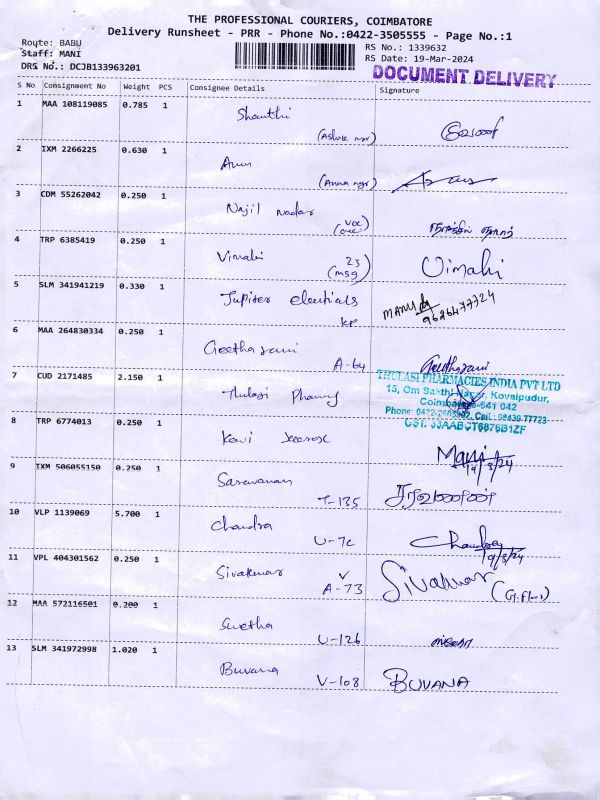 THE PROFESSIONAL COURIERS, COIMBATORE
Delivery Runsheet - PRR - Phone No.:0422-3505555 - Page No.:1
Route: BABU
RS No.: 1339632
Staff: MANI
RS Date: 19-Mar-2024
DRS No.: DCJB133963201
DOCUMENT DELIVERY
S No Consignment No Weight PCS Consignee Details Signature
1 MAA 108119085 0.785 1 Shanthi
(Ashok ngr)
2 IXM 2266225 0.630 1 Arun
(Anna ngr)
3 CDM 55262042 0.250 1 Najil nadar
(voc
4 TRP 6385419 0.250 1 Vimahi 23 Vimahi
(msg)
5 SLM 341941219 0.330 1 Jupiter
KP 9626477724
6 MAA 264830334 0.250 1 Geetharani
A-64 Geetharani
7 CUD 2171485 2.150 1 Thulasi THULASI PHARMACIES INDIA PVT LTD
15, Om Sakthi Nagar, Kovaipudur,
Coimbatore-641 042
Phone: Cell: 98439-77723
GST: 33AABCT6876B1ZF
8 TRP 6774013 0.250 1 Mani
19/3/24
9 IXM 506055150 0.250 1 Saravanan
T-135 சரவணன்
10 VLP 1139069 5.700 1 Chandra
U-72 Chandra
19/3/24
11 VPL 404301562 0.250 1 Sivakumar Sivakumar
A-73
12 MAA 572116501 0.200 1 Swetha
U-126
13 SLM 341972998 1.020 1 Buvana
V-108 BUVANA